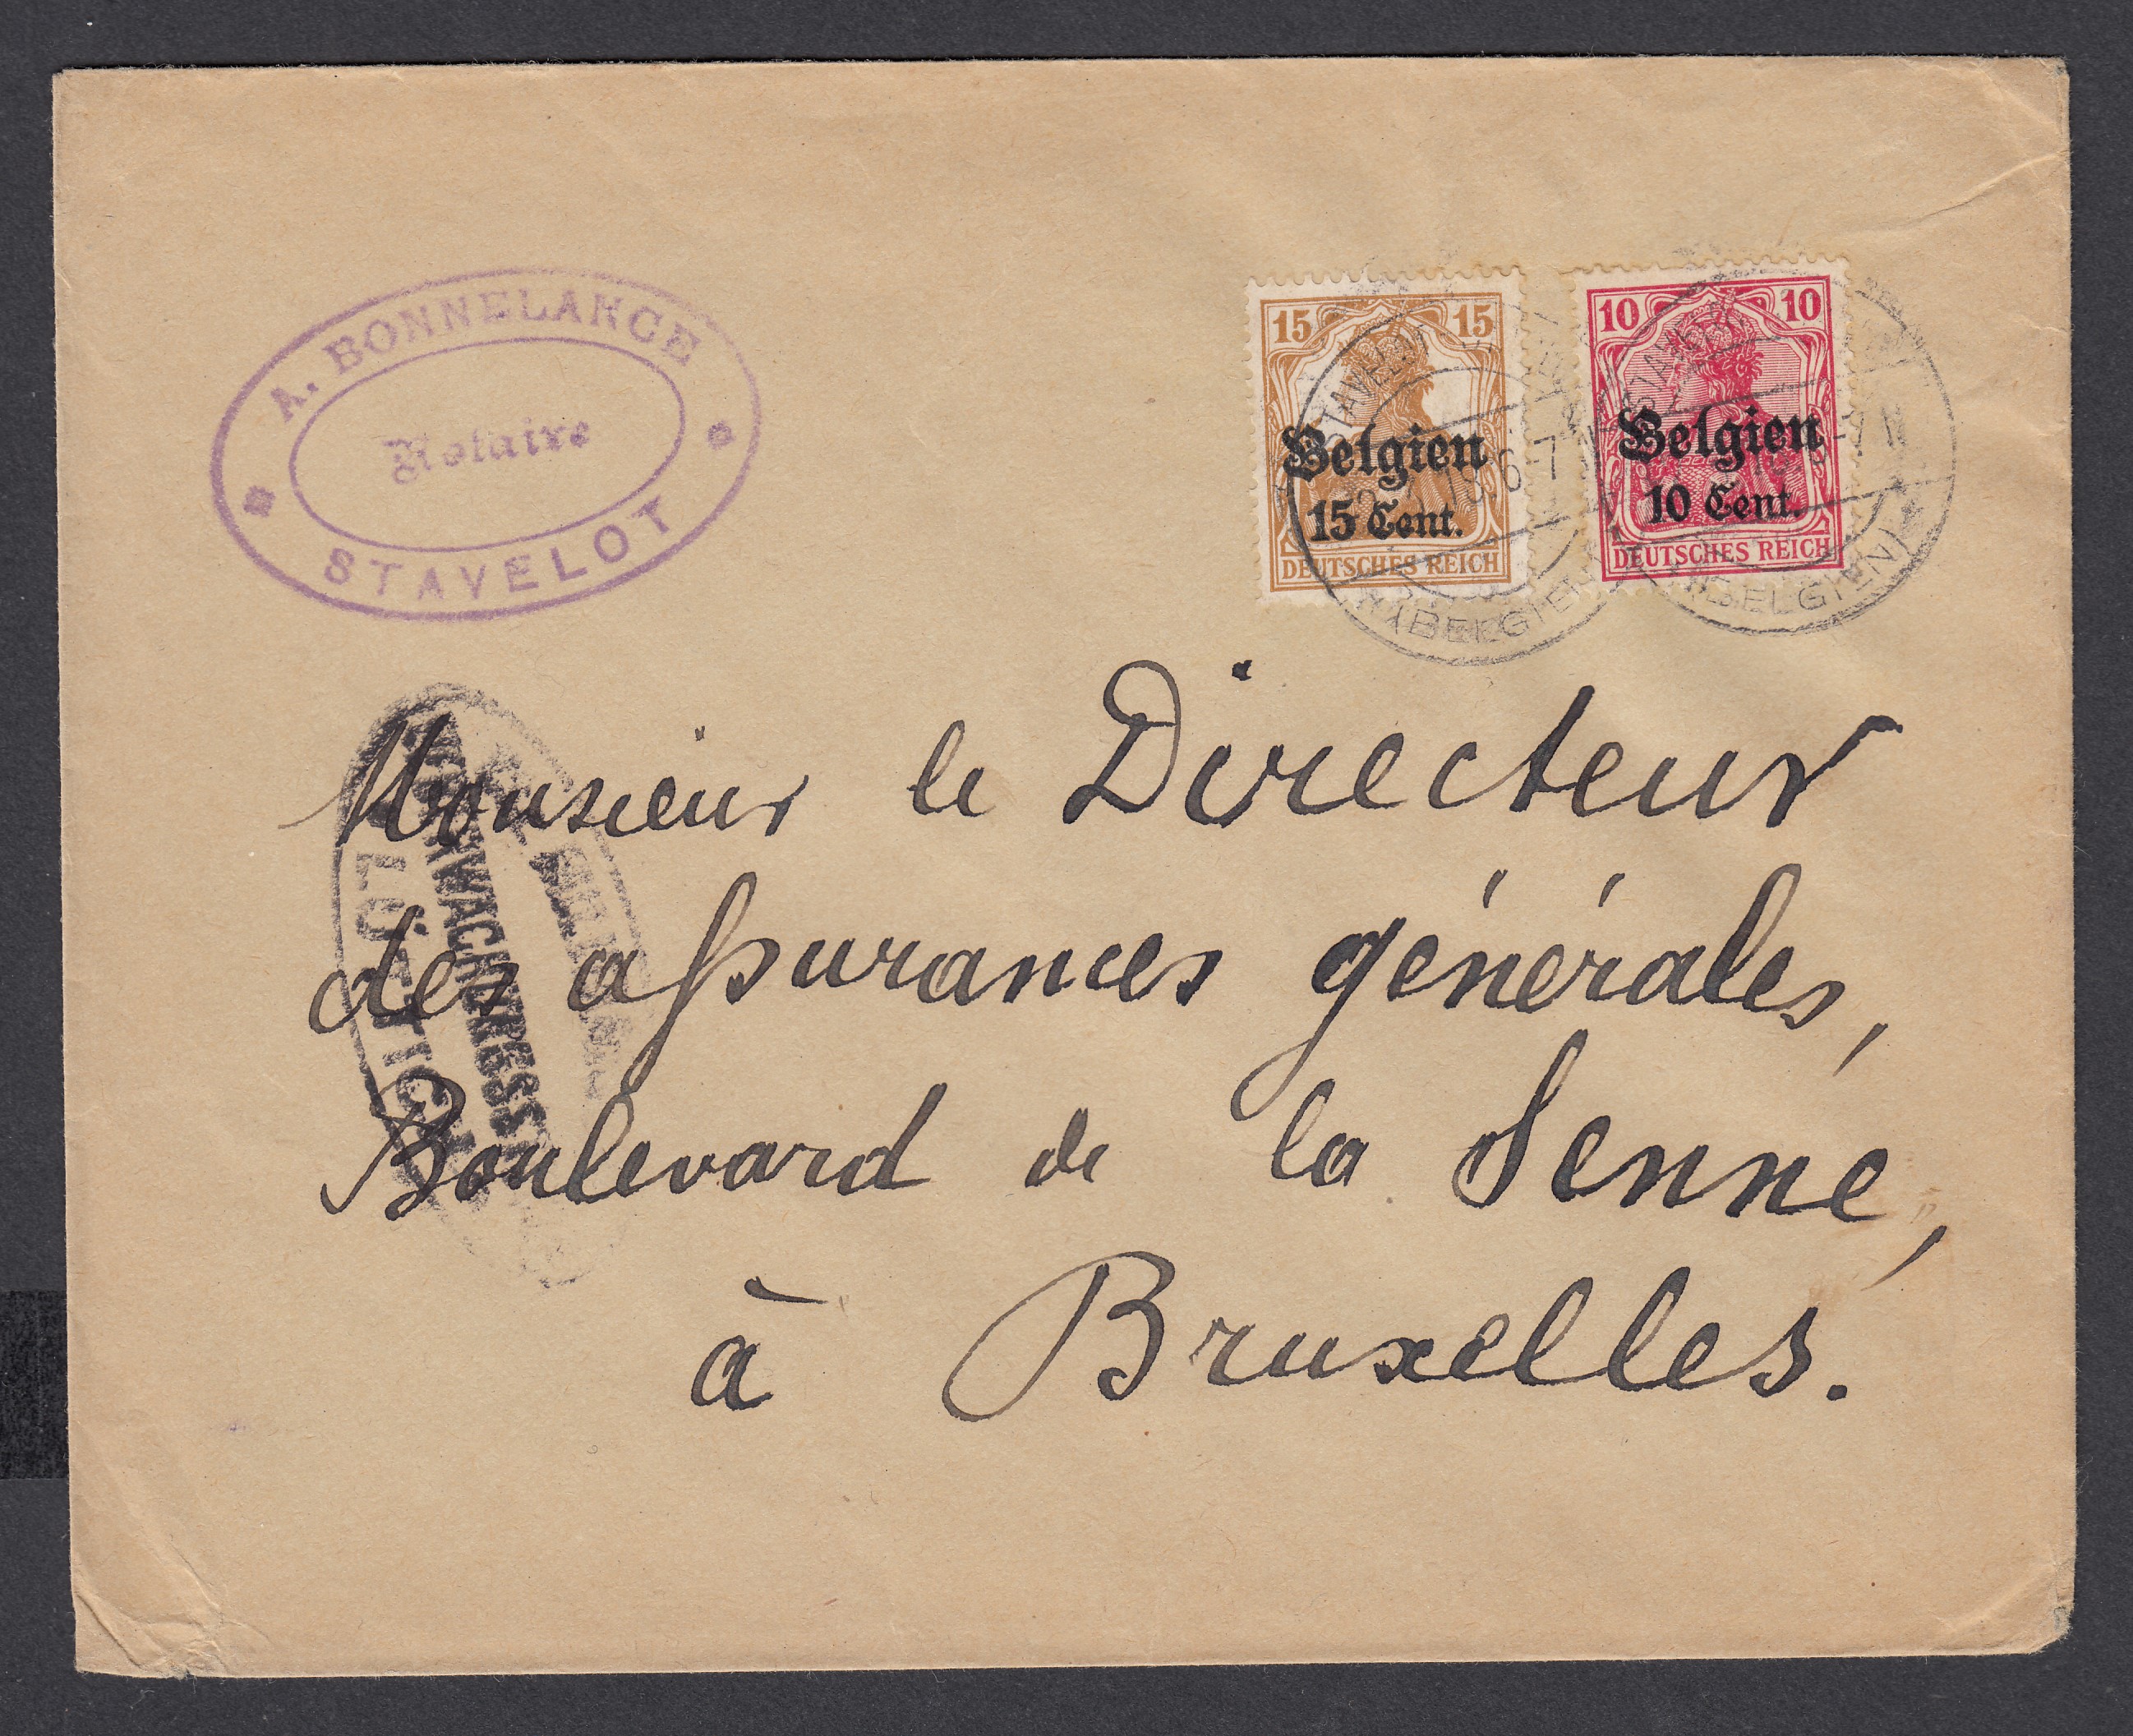 A. BONNELANCE
Notaire
STAVELOT
15 15
Belgien
15 Cent.
DEUTSCHES REICH
10 10
Belgien
10 Cent.
DEUTSCHES REICH
STAVELOT
(BELGIEN)
STAVELOT
(BELGIEN)
Monsieur le Directeur
des assurances générales,
Boulevard de la Senne,
à Bruxelles.